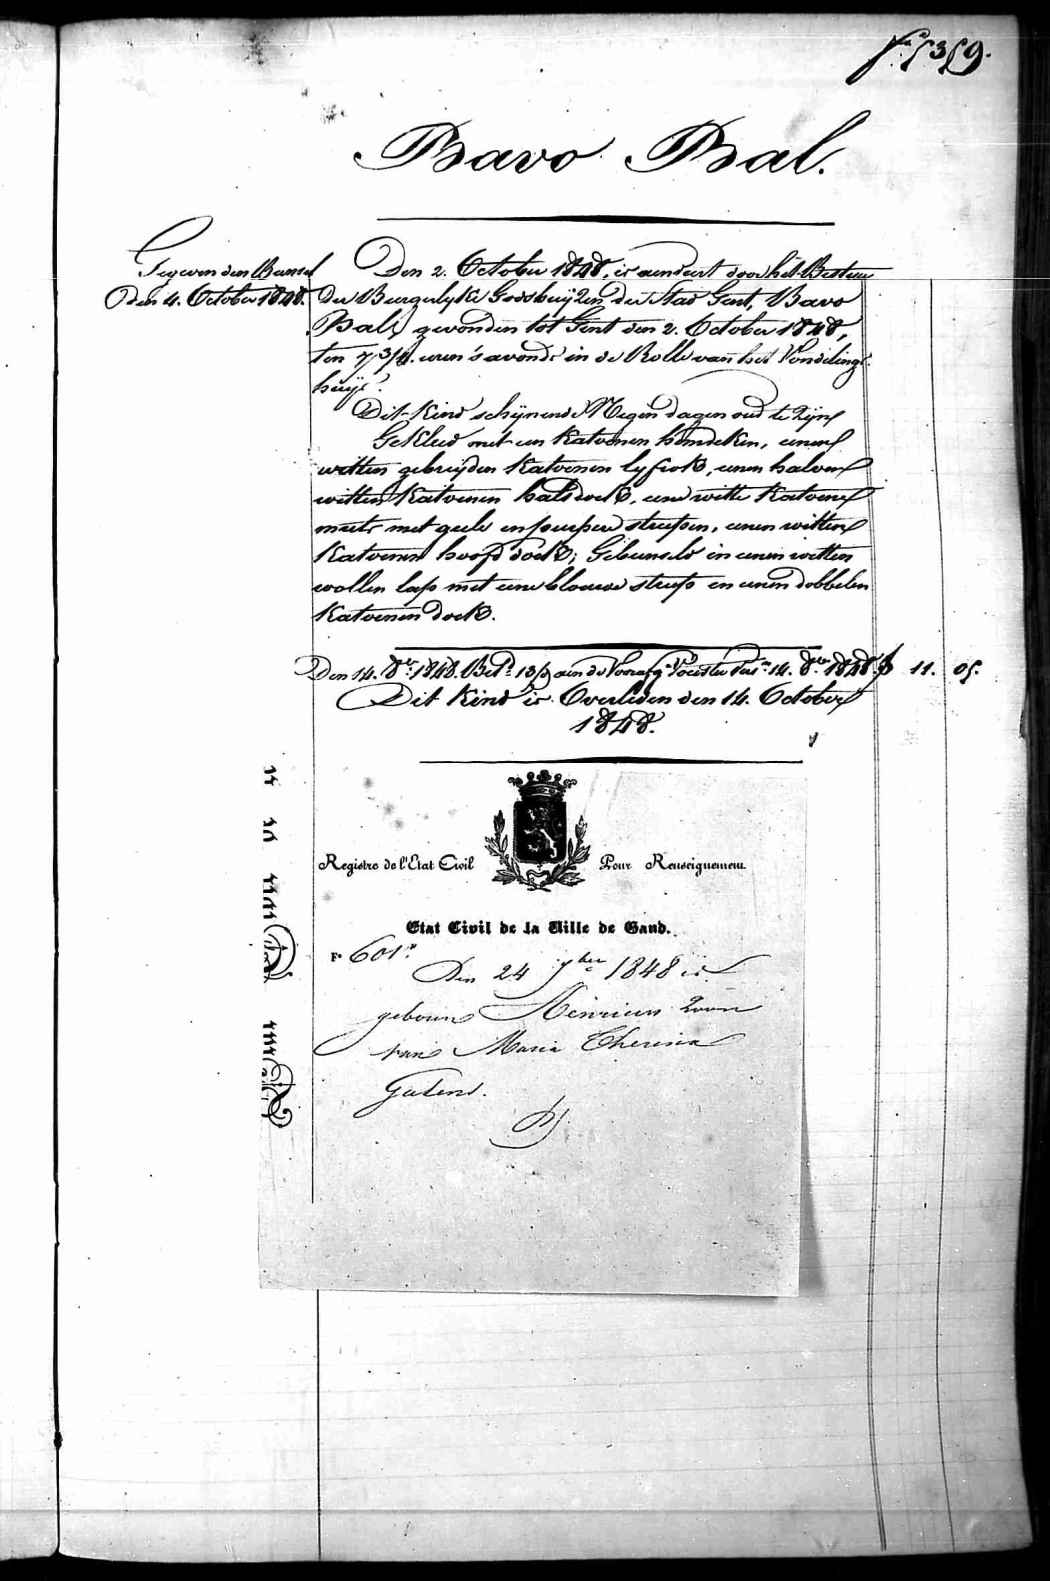 Bavo Bal.
Gegeven den Bunsel
Den 4. October 1848.
Den 2. October 1848, is aenveert door het Bestuur
der Burgerlyke Godshuijzen der Stad Gent, Bavo
Bal, gevonden tot Gent den 2. October 1848,
ten 7 3/4 uren 's avonds in de Rolle van het Vondelings
huijs.
Dit Kind schijnende Negen dagen oud te zijn
Gekleed met een Katoenen hemdeken, eenen
witten gebreijden Katoenen lyfrok, eenen halven
witten Katoenen halsdoek, eene witte Katoene
muts met geele en purpere streepen, eenen witten
Katoenen hoofddoek; Gebunseld in eenen witten
wollen lap met eene blauwe streep en eenen dobbelen
Katoenen doek.
Den 14. 8er 1848. Bet. 13 aen de Voedster 14. 8er 1848. 11. 05.
Dit Kind is Overleden den 14. October
1848.
Registre de l'Etat Civil Pour Renseignement
Etat Civil de la Ville de Gand.
F° 601
Den 24 7ber 1848 is
geboren Henricus zoon
van Maria Theresia